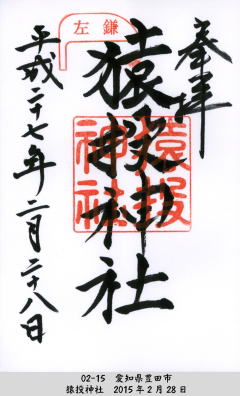 奉拝
左鎌
猿投神社
猿投神社
平成二十七年二月二十八日
02-15 愛知県豊田市
猿投神社 2015年2月28日